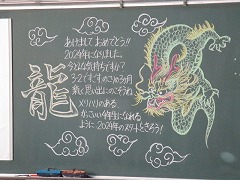 龍
あけまして おめでとう!!
2024年になりました。
今どんな気持ちですか?
3-2ですごすのこり3か月
楽しい思い出にのこそうね。
メリハリのある
かっこいい4年生になれる
ように 2024年のスタートをきろう!